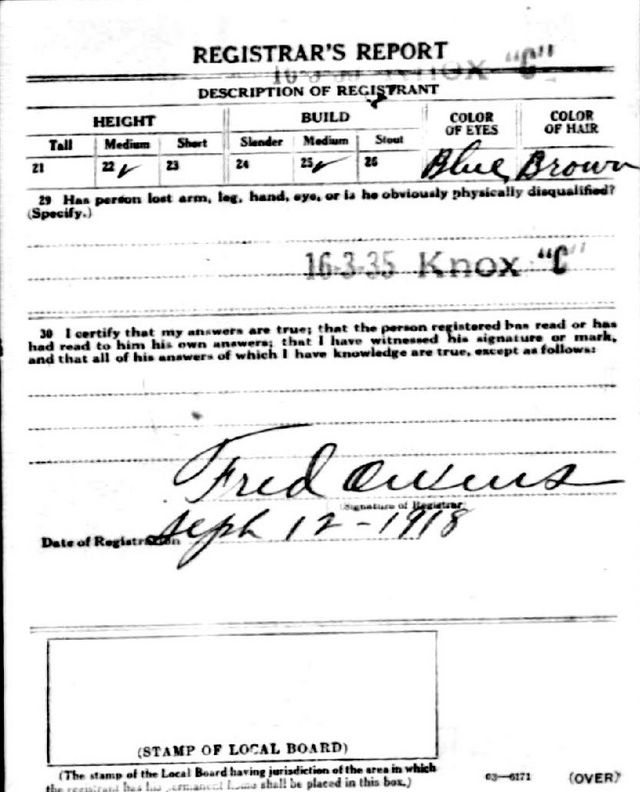 REGISTRAR'S REPORT
16-3-35 Knox "C"
DESCRIPTION OF REGISTRANT
HEIGHT BUILD COLOR OF EYES COLOR OF HAIR
Tall Medium Short Slender Medium Stout
21 22 ✓ 23 24 25 ✓ 26 Blue Brown
29 Has person lost arm, leg, hand, eye, or is he obviously physically disqualified?
(Specify.)
16-3-35 Knox "C"
30 I certify that my answers are true; that the person registered has read or has
had read to him his own answers; that I have witnessed his signature or mark,
and that all of his answers of which I have knowledge are true, except as follows:
Fred Owens
(Signature of Registrar)
Date of Registration Sept 12-1918
(STAMP OF LOCAL BOARD)
(The stamp of the Local Board having jurisdiction of the area in which
the registrant has his permanent home shall be placed in this box.)
03—6171 (OVER)